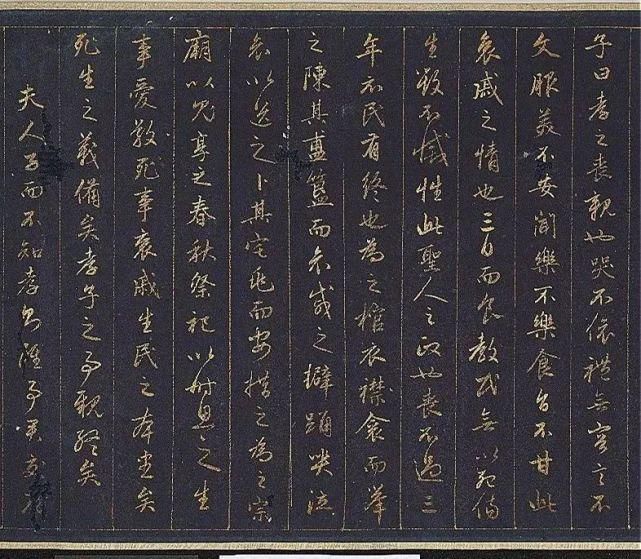 子曰孝之喪親也哭不偯禮無容言不
文服美不安聞樂不樂食旨不甘此
哀戚之情也三日而食教民無以死傷
生毀不滅性此聖人之政也喪不過三
年示民有終也為之棺衣襟衾而舉
之陳其簠簋而哀戚之擗踊哭泣
哀以送之卜其宅兆而安措之為之宗
廟以鬼享之春秋祭祀以時思之生
事愛敬死事哀戚生民之本盡矣
死生之義備矣孝子之事親終矣
夫人子而不知孝